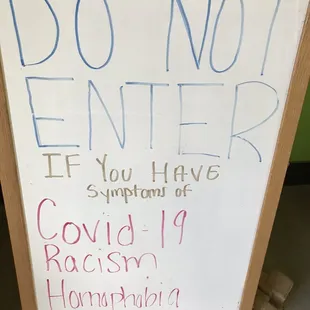 DO NOT
ENTER
IF You HAVE
Symptoms of
Covid-19
Racism
Homophobia